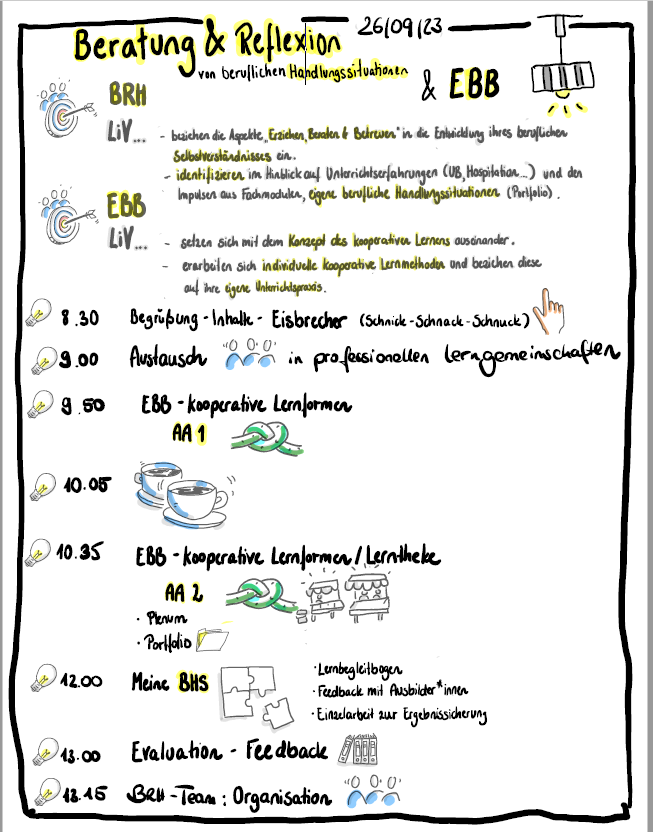 Beratung & Reflexion 26/09/23
von beruflichen Handlungssituationen
& EBB
BRH
LiV... - beziehen die Aspekte „Erziehen, Beraten & Betreuen" in die Entwicklung ihres beruflichen
Selbstverständnisses ein.
- identifizieren im Hinblick auf Unterrichtserfahrungen (UB, Hospitation...) und den
Impulsen aus Fachmodulen, eigene berufliche Handlungssituationen (Portfolio).
EBB
LiV... - setzen sich mit dem Konzept des kooperativen Lernens auseinander.
- erarbeiten sich individuelle kooperative Lernmethoden und beziehen diese
auf ihre eigene Unterrichtspraxis.
8.30 Begrüßung - Inhalte - Eisbrecher (Schnick-Schnack-Schnuck)
9.00 Austausch in professionellen Lerngemeinschaften
9.50 EBB - kooperative Lernformen
AA 1
10.05
10.35 EBB - kooperative Lernformen / Lerntheke
AA 2
· Plenum
· Portfolio
12.00 Meine BHS
· Lernbegleitbogen
· Feedback mit Ausbilder*innen
· Einzelarbeit zur Ergebnissicherung
13.00 Evaluation - Feedback
13.15 BRH-Team: Organisation